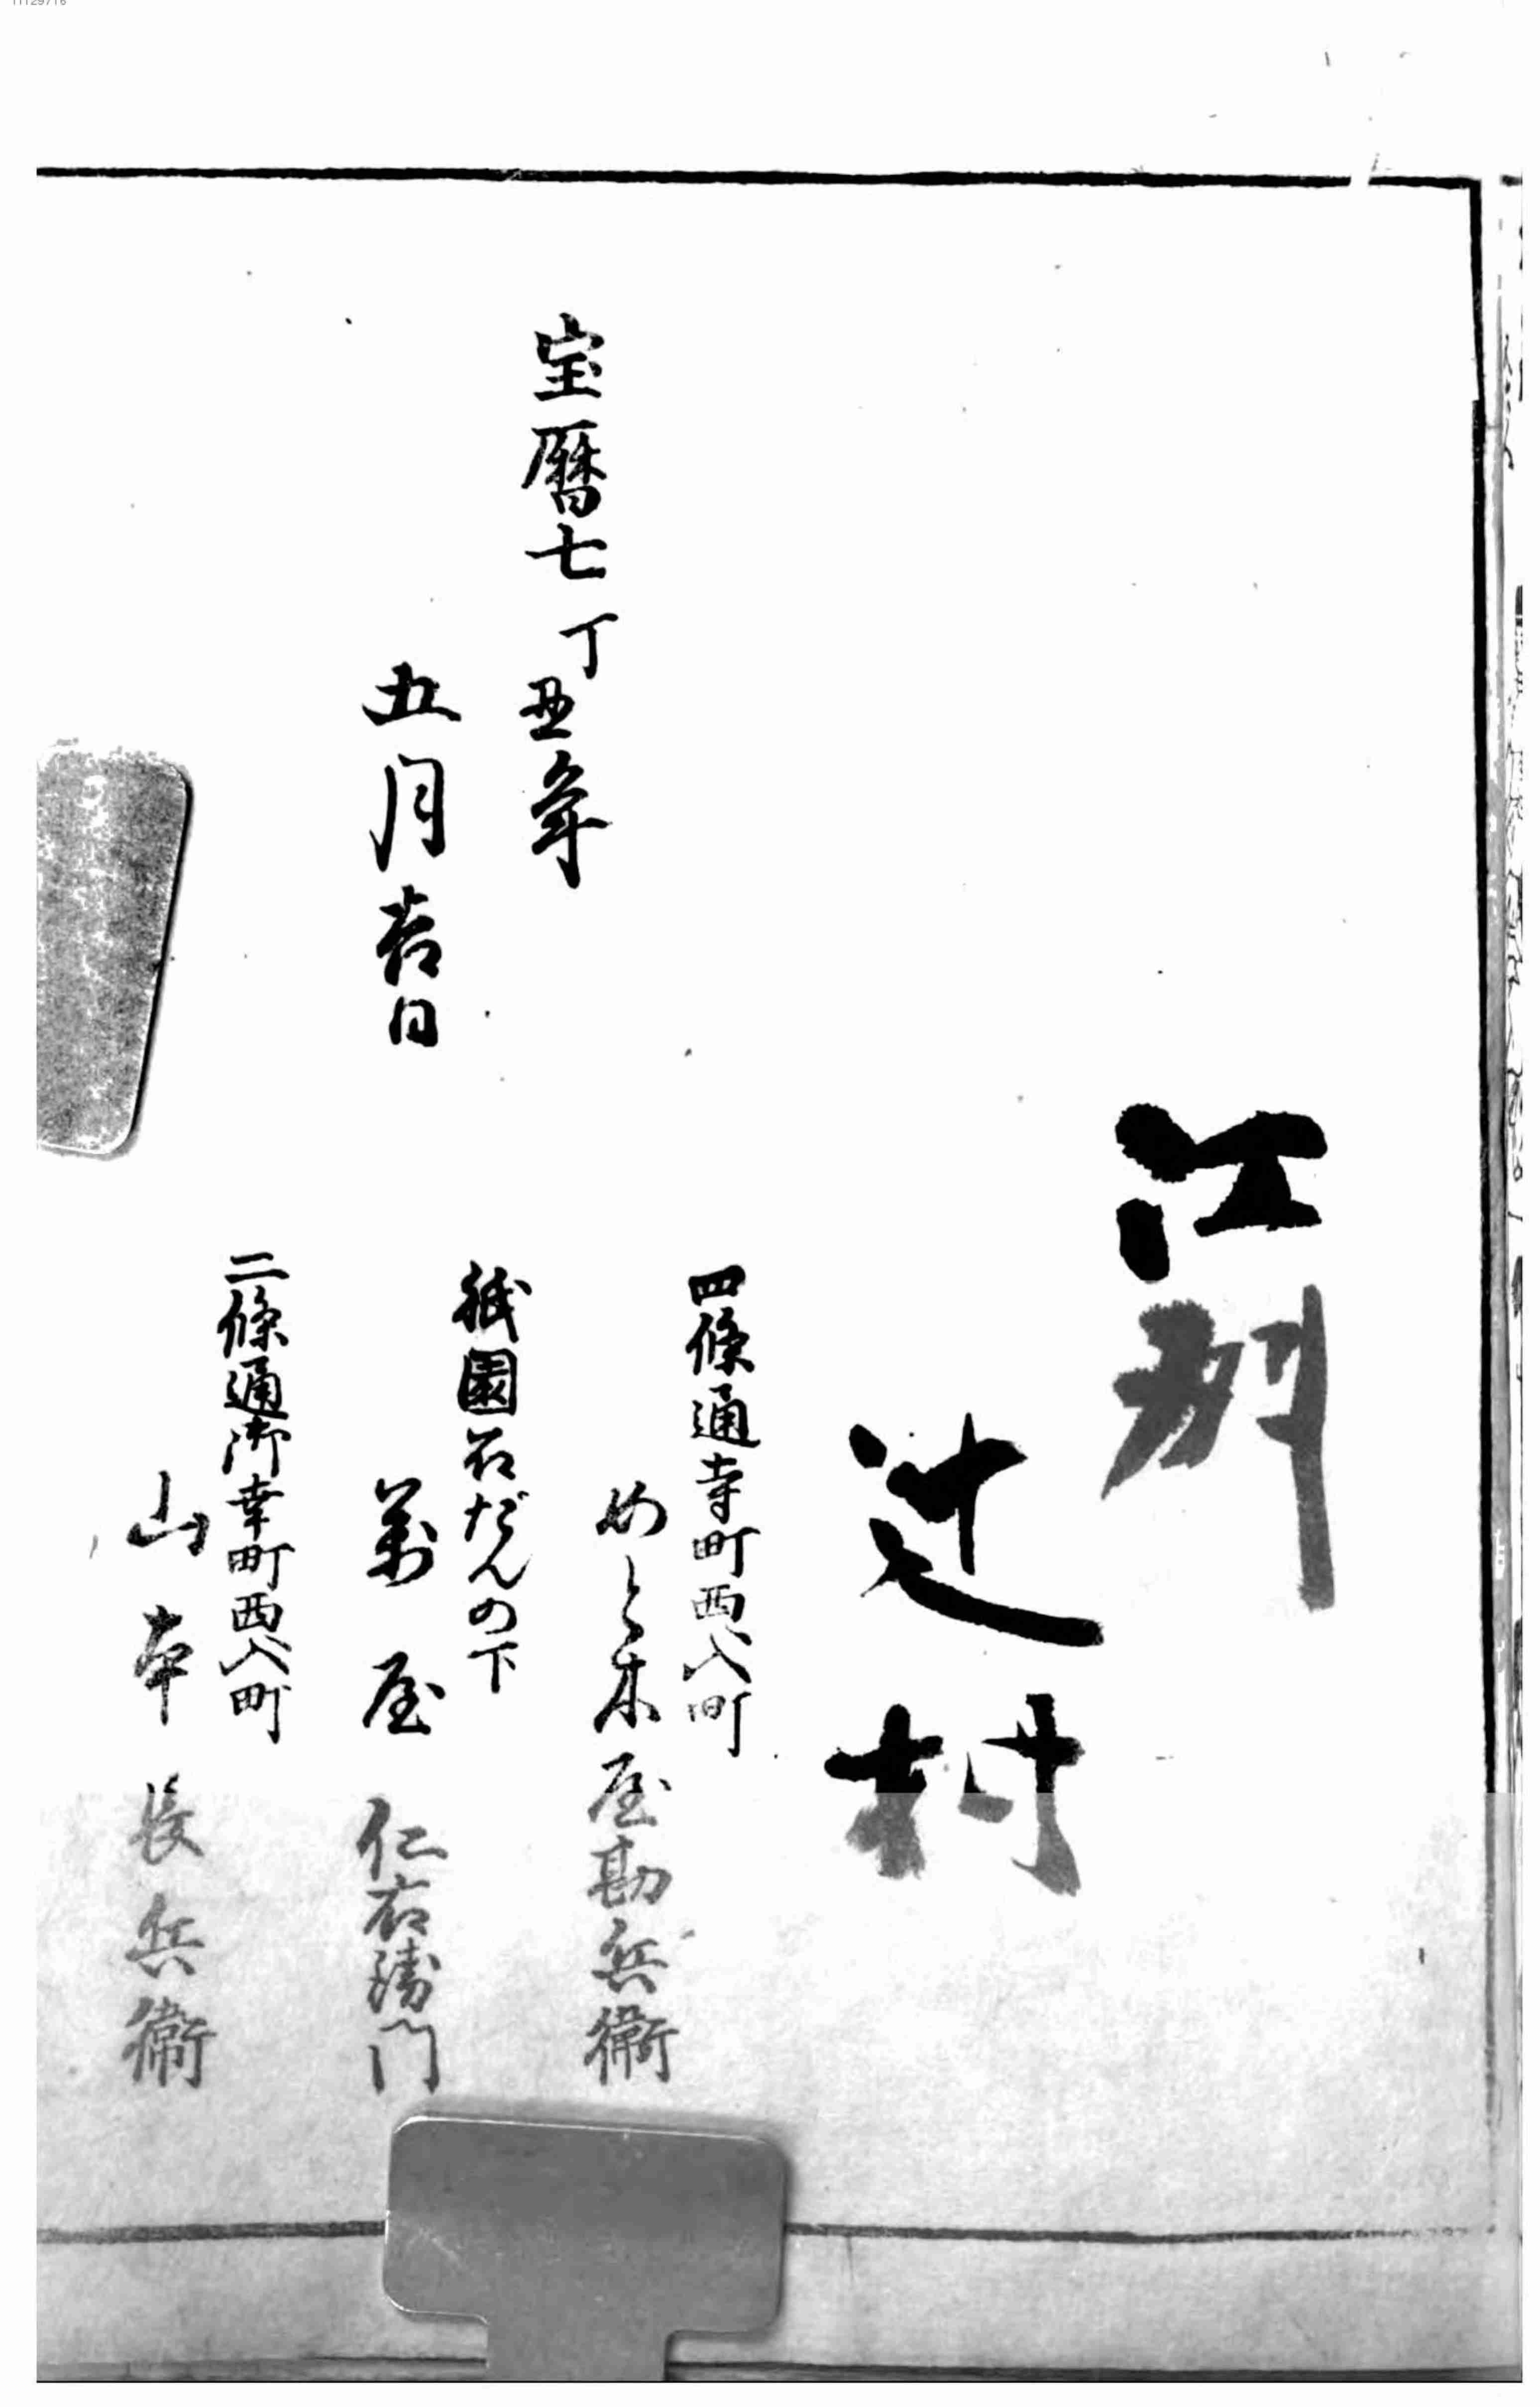 江州
辻村
宝暦七丁丑年
五月吉日
四條通寺町西へ入町
めとぎ屋勘兵衛
祇園石だんの下
萬屋仁右衛門
二條通御幸町西へ入町
山本長兵衛